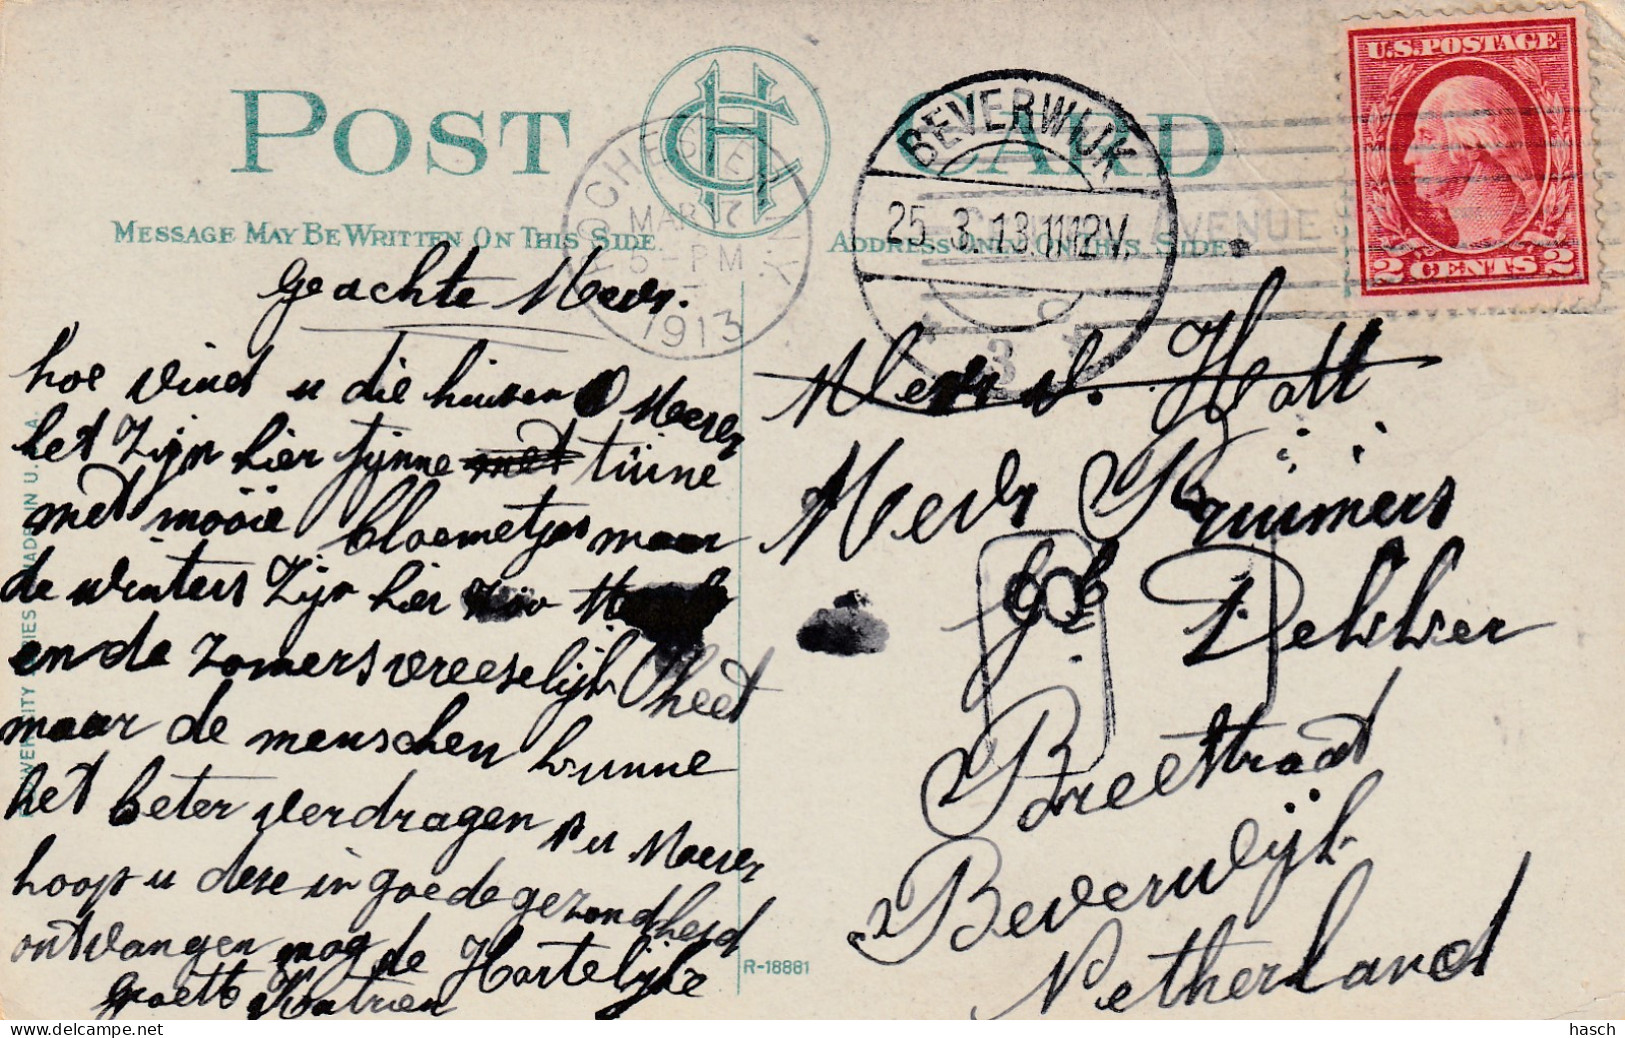 POST CARD
CHT
MESSAGE MAY BE WRITTEN ON THIS SIDE
ADDRESS ONLY ON THIS SIDE
ROCHESTER N.Y.
MAR 7
5-PM
1913
BEVERWIJK
25.3.13.1112V.
3
AVENUE
U.S. POSTAGE
2 CENTS 2
Geachte Mevr.
hoe vind u die huisen Mevr
het zijn hier fijnne tuine
met mooie bloemetjes maar
de winters zijn hier zoo
en de zomers vreeselijk heet
maar de menschen kunne
het beter verdragen Nu Mevr
hoop u dese in goede gezondheid
ontvangen mog de Hartelijke
groette Katrien
Mevr v. Hatt
Mevr Kruimers
Dekker
Breestraat
Beverwijk
Netherland
R-18881
UNIVERSITY SERIES MADE IN U.S.A.
hasch